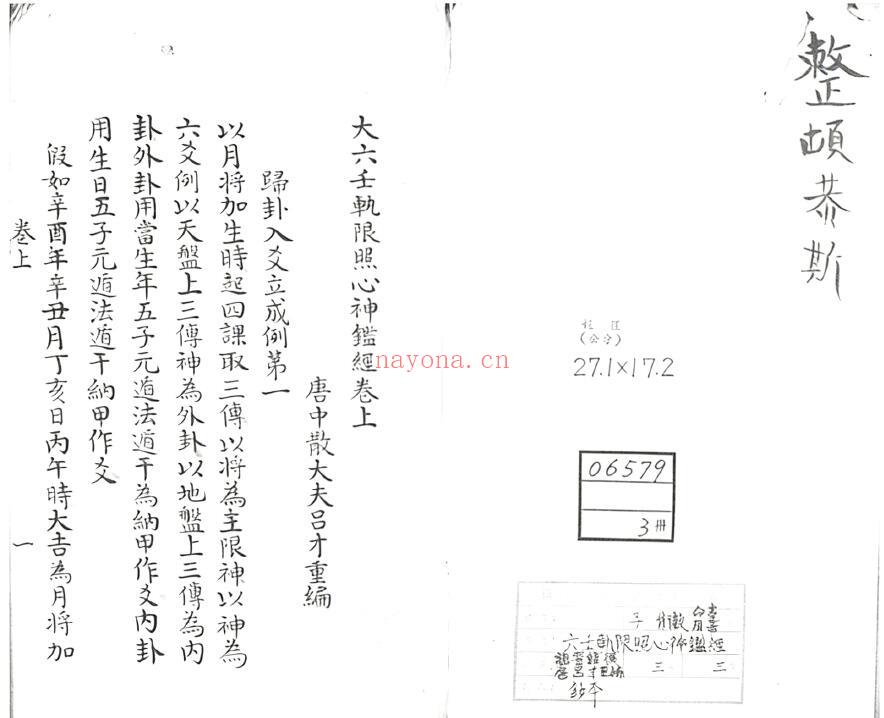 整頓恭斯
(公分)
27.1×17.2
06579
3冊
子
六壬軌限照心神鑑經
三
三
鈔本
大六壬軌限照心神鑑經卷上
唐中散大夫吕才重編
歸卦入爻立成例第一
以月將加生時起四課取三傳以將為主限神以神為
六爻例以天盤上三傳神為外卦以地盤上三傳為内
卦外卦用當生年五子元遁法遁干為納甲作爻内卦
用生日五子元遁法遁干納甲作爻
假如辛酉年辛丑月丁亥日丙午時大吉為月將加
卷上
一
nayona.cn